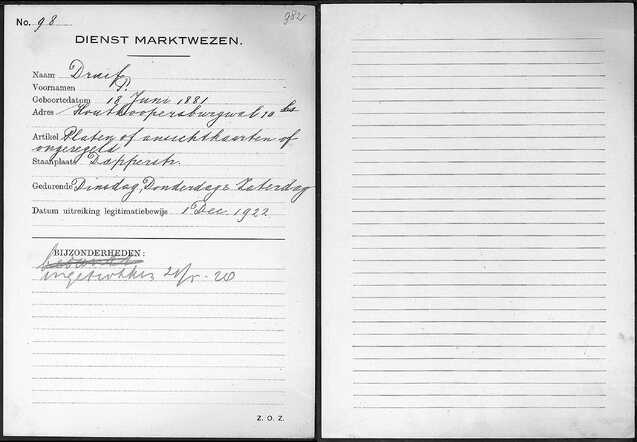 No. 98
982
DIENST MARKTWEZEN.
Naam Draif
Voornamen P.
Geboortedatum 18 Juni 1881
Adres Houtkoopersburgwal 10 bis
Artikel Platen of ansichtkaarten of
ongeregeld
Staanplaats Dapperstr.
Gedurende Dinsdag, Donderdag & Zaterdag
Datum uitreiking legitimatiebewijs 1 Dec. 1922
BIJZONDERHEDEN:
ingetrokken
Z. O. Z.